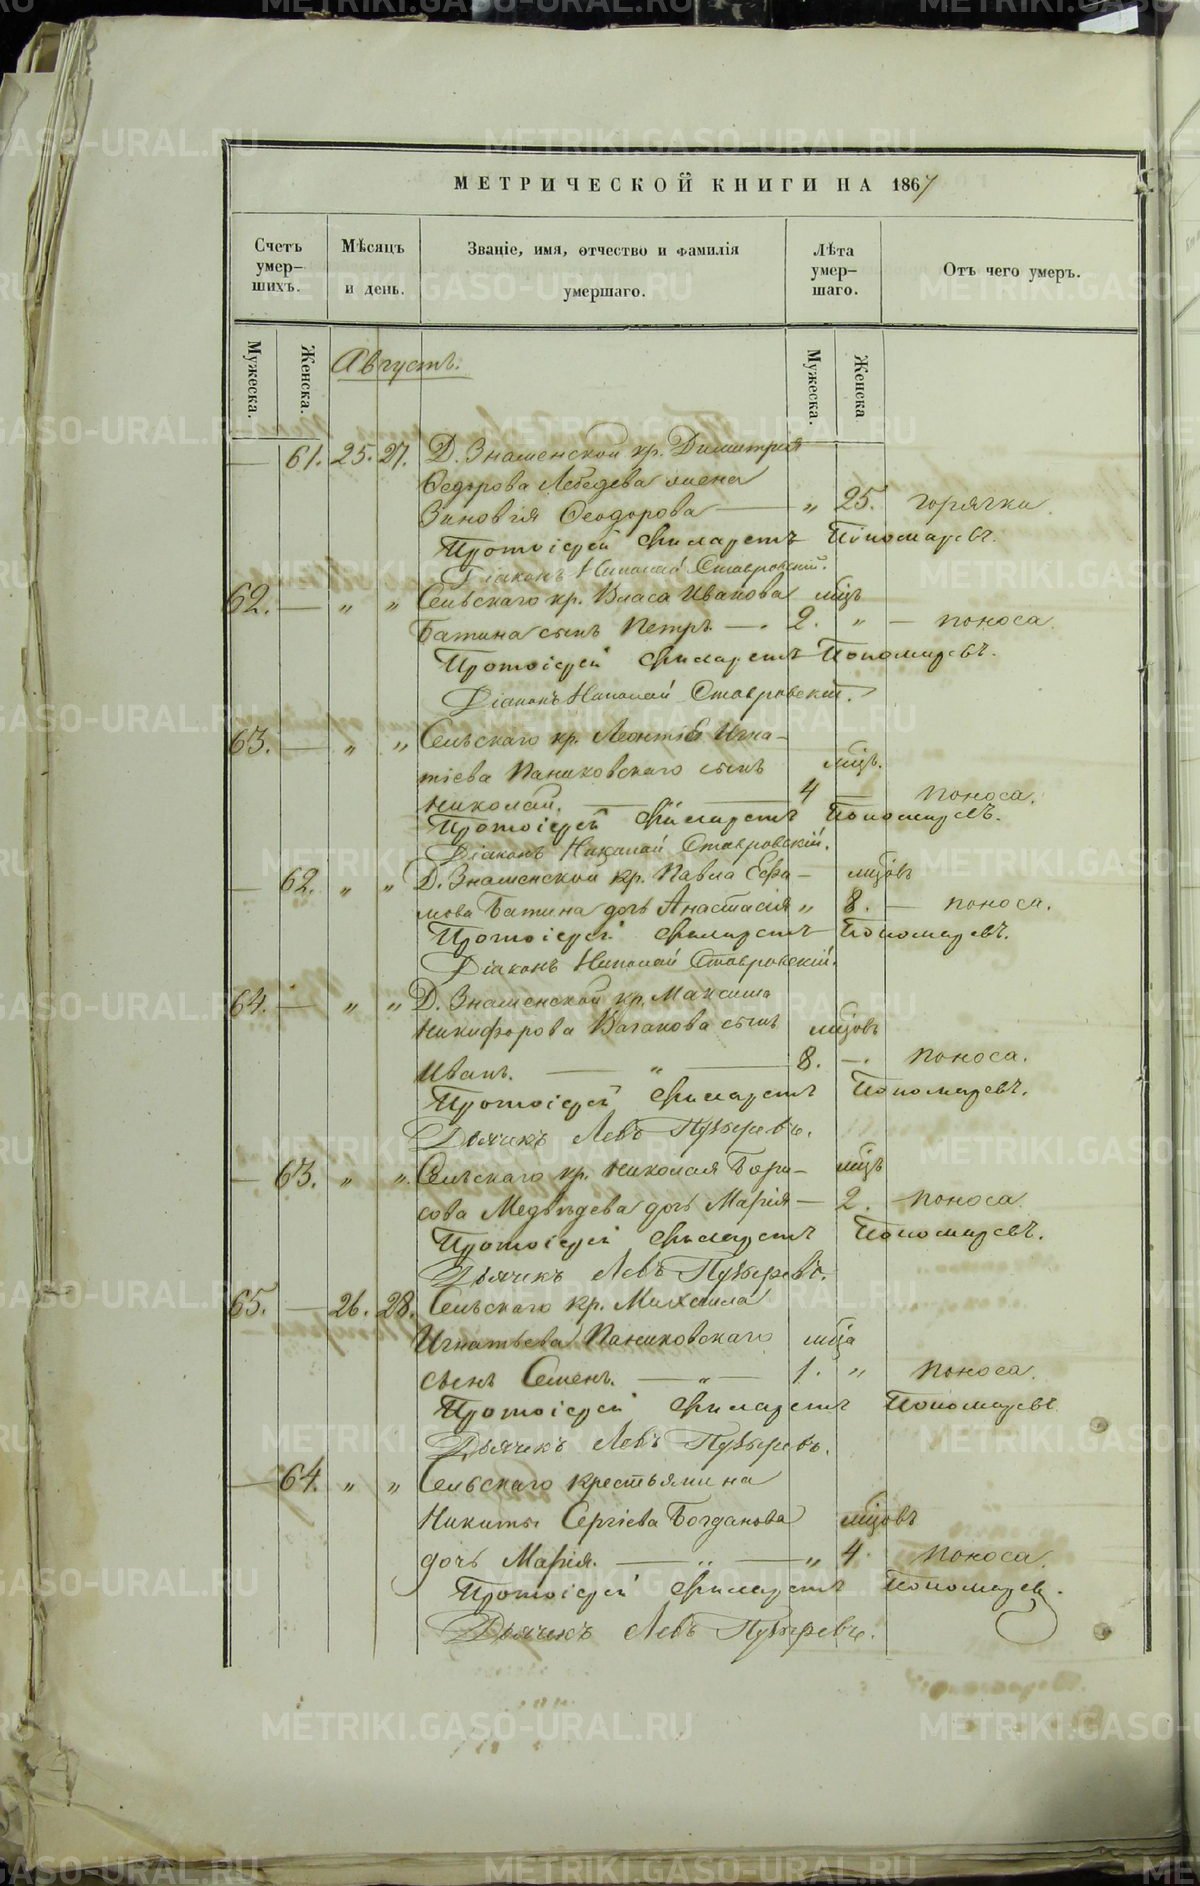 МЕТРИЧЕСКОЙ КНИГИ НА 1867
Счетъ умер-шихъ. Мѣсяцъ и день. Званіе, имя, отчество и фамилія умершаго. Лѣта умер-шаго. Отъ чего умеръ.
Мужеска. Женска. Августъ. Мужеска. Женска
— 61. 25. 27. Д. Знаменской кр. Димитрія
Ѳедорова Лебедева жена
Зиновія Ѳеодорова — „ 25. горячки.
Протоіерей Филаретъ Пономаревъ.
Діаконъ Николай Ставровскій.
62. — „ „ Сельскаго кр. Власа Иванова мѣц.
Батина сынъ Петръ — . 2. „ — поноса.
Протоіерей Филаретъ Пономаревъ.
Діаконъ Николай Ставровскій.
63. — „ „ Сельскаго кр. Леонтія Игна-
тіева Паниковскаго сынъ мѣц.
Николай. — „ — 4 — поноса.
Протоіерей Филаретъ Пономаревъ.
Діаконъ Николай Ставровскій.
— 62. „ „ Д. Знаменской кр. Павла Ефи- мѣцовъ
мова Батина дочь Анастасія „ 8. — поноса.
Протоіерей Филаретъ Пономаревъ.
Діаконъ Николай Ставровскій.
64. — „ „ Д. Знаменской кр. Максима
Никифорова Ваганова сынъ мѣцовъ
Иванъ. — „ — 8. —. поноса.
Протоіерей Филаретъ Пономаревъ.
Дьячекъ Левъ Пузыревъ.
— 63. „ „ Сельскаго кр. Николая Бори- мѣц.
сова Медвѣдева дочь Марія — 2. поноса.
Протоіерей Филаретъ Пономаревъ.
Дьячекъ Левъ Пузыревъ.
65. — 26. 28. Сельскаго кр. Михаила
Игнатьева Паниковскаго мѣца
сынъ Семенъ. — „ — 1. „ поноса.
Протоіерей Филаретъ Пономаревъ
Дьячекъ Левъ Пузыревъ.
— 64. „ „ Сельскаго крестьянина
Никиты Сергіева Богданова мѣцовъ
дочь Марія. — „ — „ 4. поноса.
Протоіерей Филаретъ Пономаревъ.
Дьячекъ Левъ Пузыревъ.
METRIKI.GASO-URAL.RU